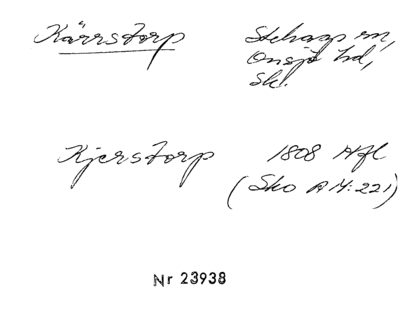 Kärrstorp Stehags sn,
Onsjö hd,
Sk.
Kjerstorp 1808 Hfl
(Sko A IV:221)
Nr 23938